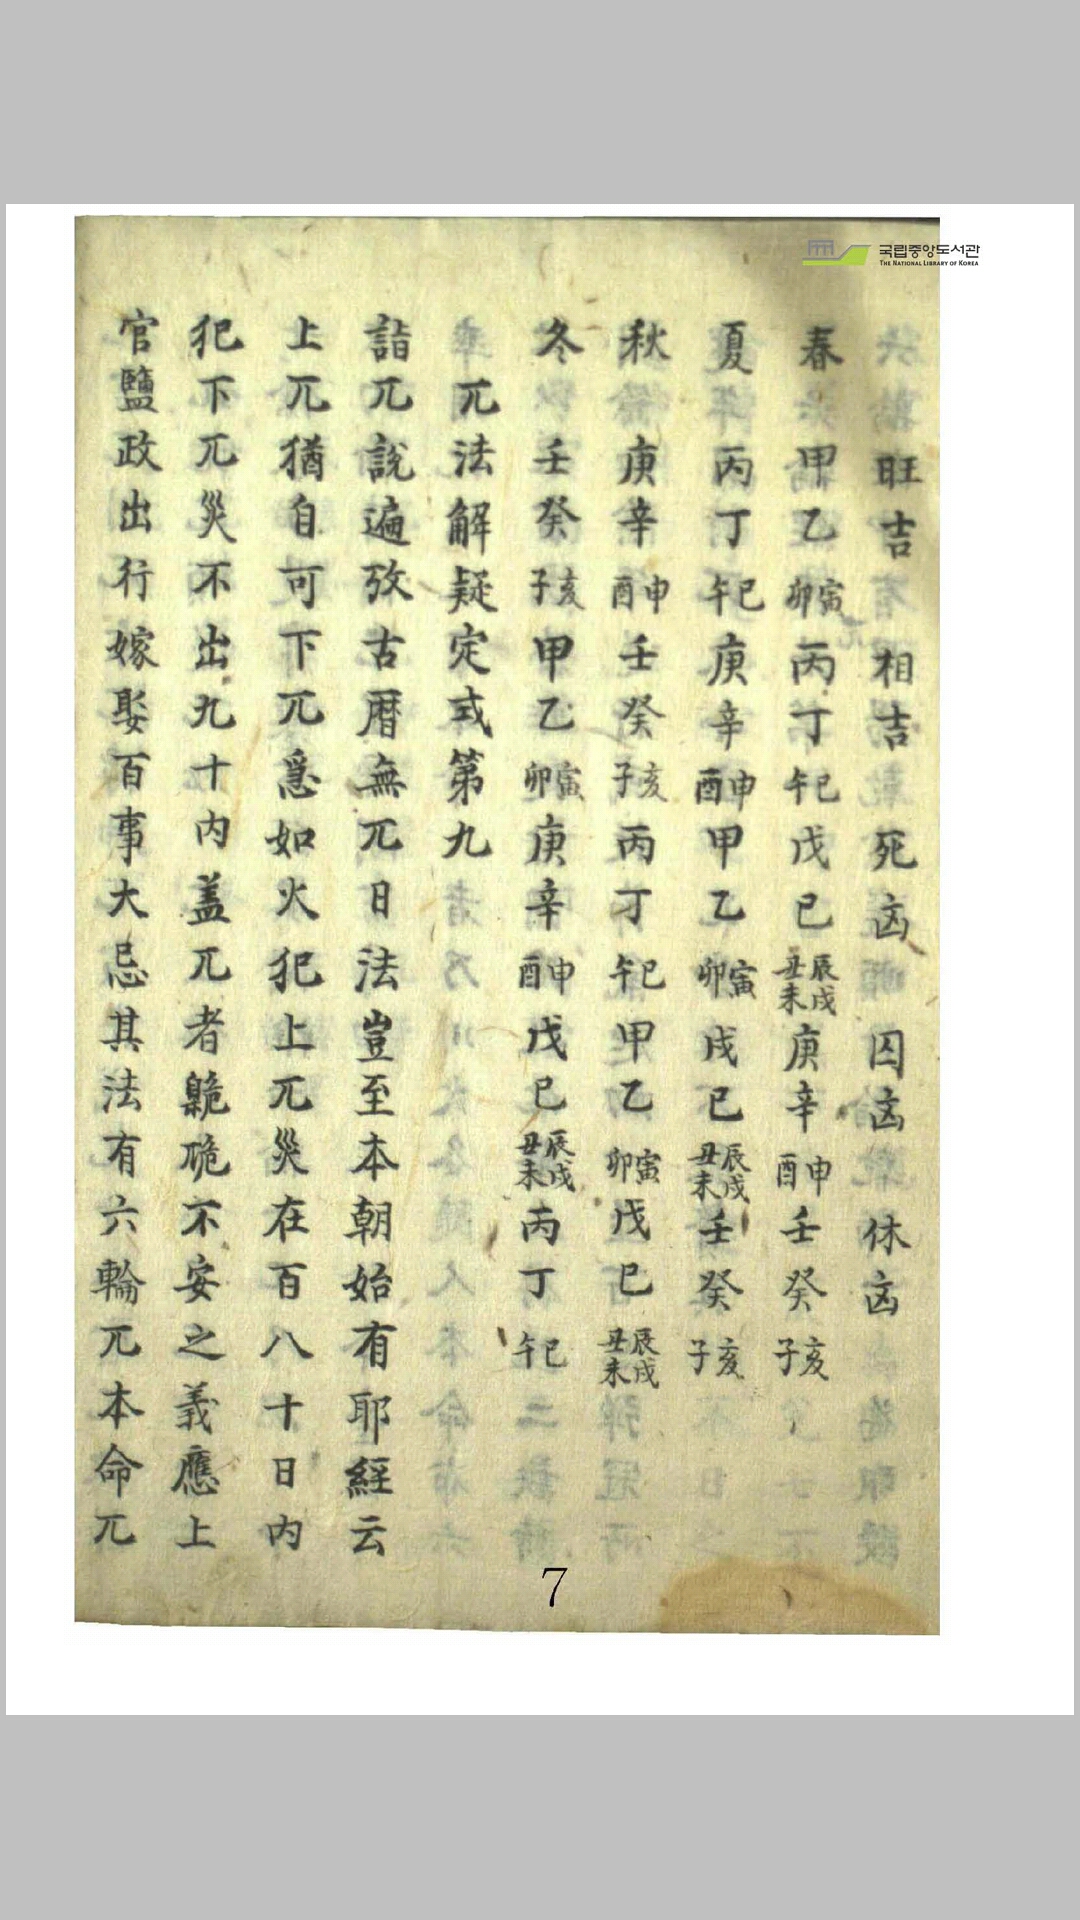 국립중앙도서관
THE NATIONAL LIBRARY OF KOREA
旺吉 相吉 死凶 囚凶 休凶
春 甲乙寅卯丙丁巳午戊己辰戌丑未庚辛申酉壬癸亥子
夏 丙丁巳午庚辛申酉甲乙寅卯戊己辰戌丑未壬癸亥子
秋 庚辛申酉壬癸亥子丙丁巳午甲乙寅卯戊己辰戌丑未
冬 壬癸亥子甲乙寅卯庚辛申酉戊己辰戌丑未丙丁巳午
兀法解疑定式第九
詣兀說遍攷古曆無兀日法豈至本朝始有耶經云
上兀猶自可下兀急如火犯上兀災在百八十日內
犯下兀災不出九十內盖兀者臲硊不安之義應上
官鹽政出行嫁娶百事大忌其法有六輪兀本命兀
7